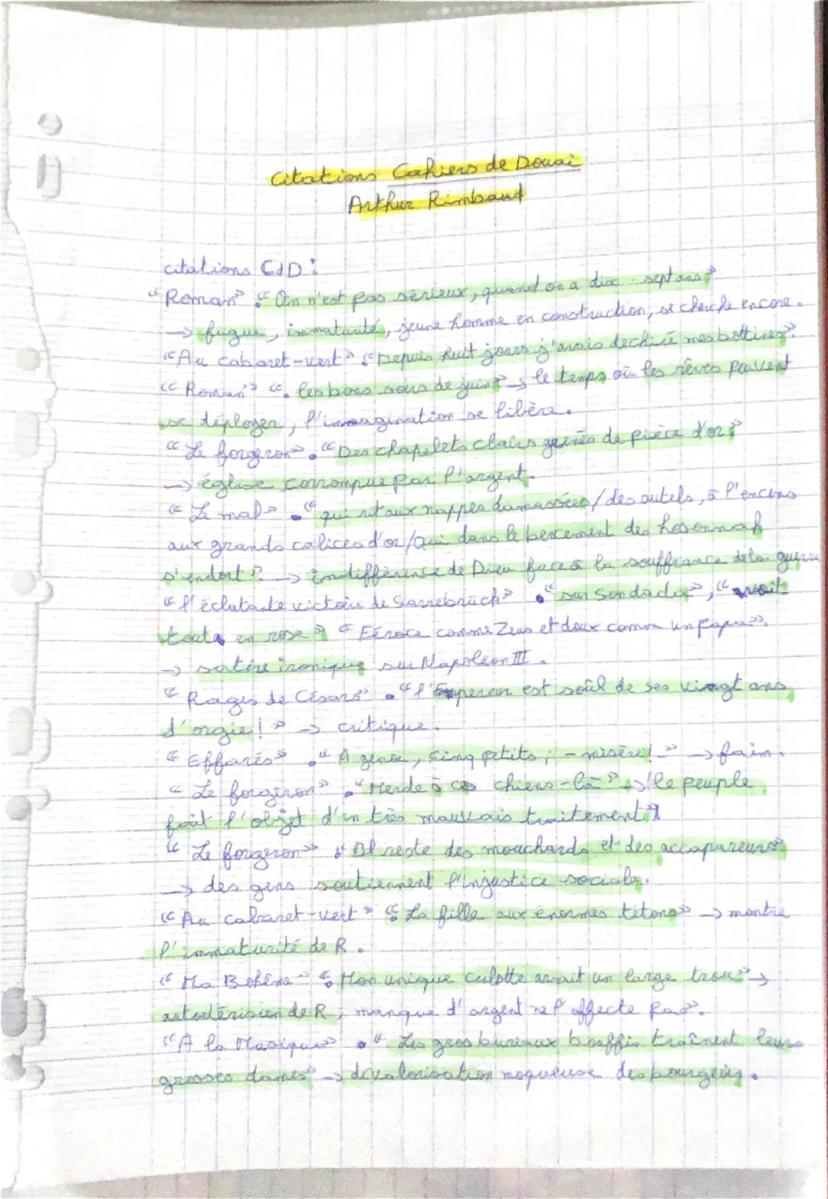 Citations Cahiers de Douai
Arthur Rimbaud
citations CdD :
"Roman" : "On n'est pas sérieux, quand on a dix-sept ans"
→ fugue, immaturité, jeune homme en construction, se cherche encore.
"Au cabaret-vert" : "Depuis huit jours j'avais déchiré mes bottines".
"Roman" : "les bons soirs de juin" → le temps où les rêves peuvent
se déployer, l'imagination se libère.
"Le forgeron" : "Des chapelets clairs grenés de pièce d'or"
→ église corrompue par l'argent.
"Le mal" : "qui rit aux nappes damassées/des autels, à l'encens
aux grands calices d'or/Qui dans le bercement des hosannah
s'endort" → indifférence de Dieu face à la souffrance de la guerre
"l'éclatante victoire de Sarrebrück" : "sur son dada", "voit
tout en rose" "Féroce comme Zeus et doux comme un papa".
→ satire ironique sur Napoléon III.
"Rages de Césars" : "l'Empereur est soûl de ses vingt ans
d'orgie !" → critique.
"Effarés" : "À genoux, cinq petits ; - misère ! -" → faim.
"Le forgeron" : "Merde à ces chiens-là" → le peuple
fait l'objet d'un très mauvais traitement
"Le forgeron" : "Il reste des mouchards et des accapareurs"
→ des gens soutiennent l'injustice sociale.
"Au cabaret-vert" : "La fille aux énormes tétons" → montre
l'immaturité de R.
"Ma Bohême" : "Mon unique culotte avait un large trou" →
autodérision de R, manque d'argent ne l'affecte pas.
"À la Musique" : "Les gros bureaux bouffis traînent leurs
grosses dames" → dévalorisation moqueuse des bourgeois.